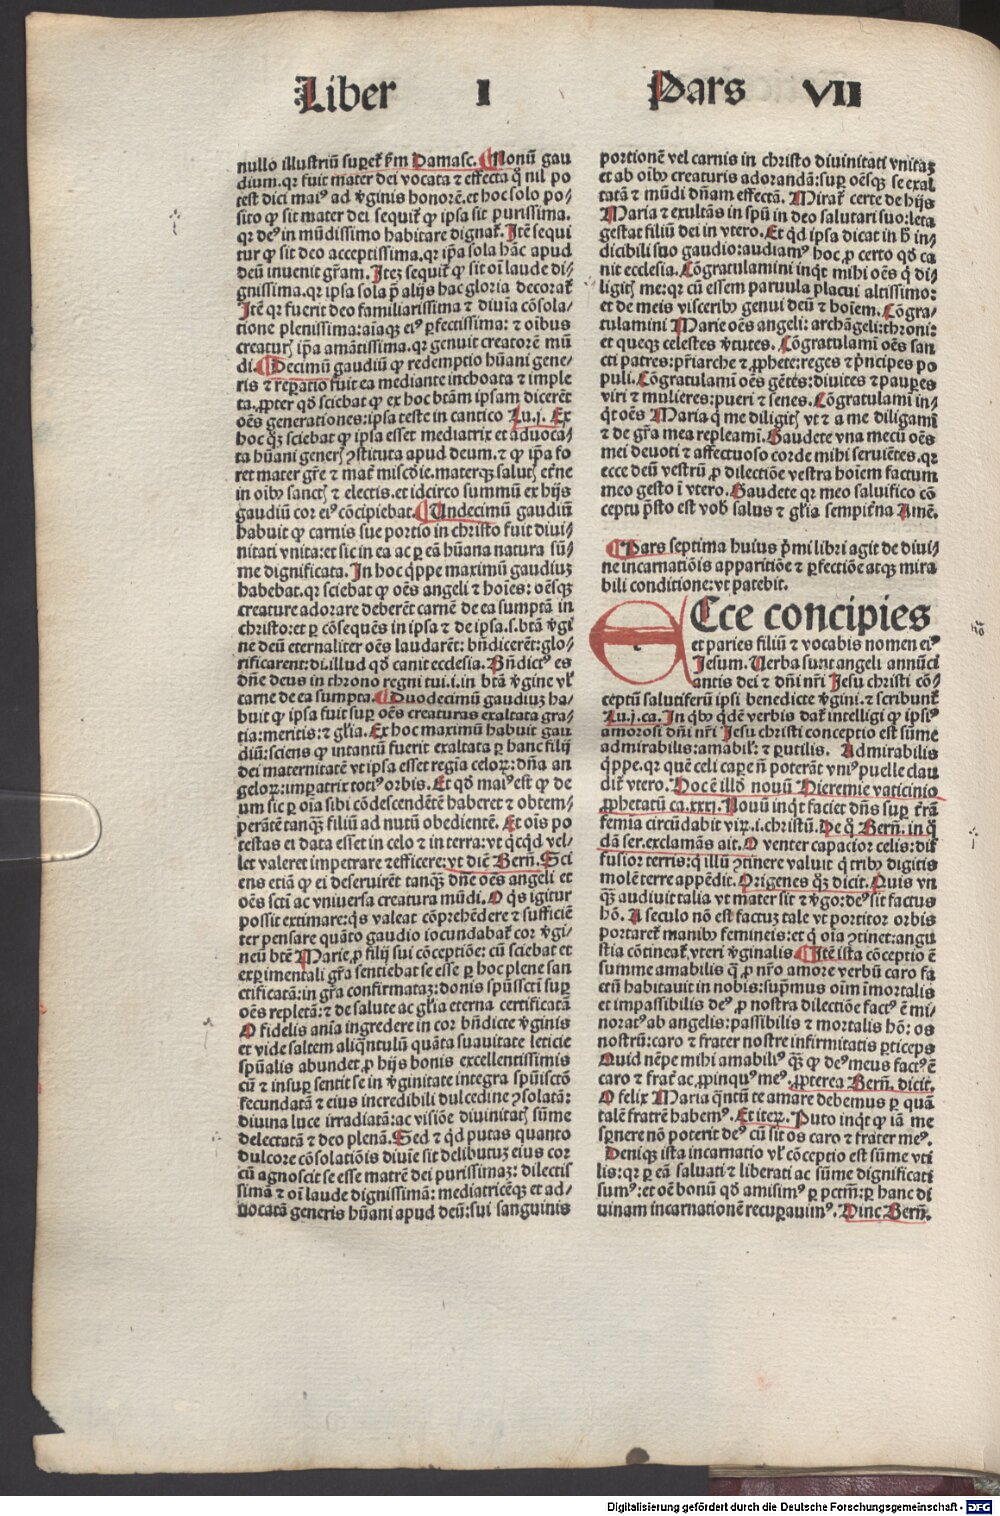 Liber I Pars VII
nullo illustriũ suꝑet᷑ ẜm Damasc. Nonũ gau
dium.qꝛ fuit mater dei vocata ⁊ effecta q̃ nil po
test dici maiꝰ ad ṽginis honorẽ.et hoc solo po⸗
sito ꝙ sit mater dei sequit᷑ ꝙ ipsa sit purissima.
qꝛ deꝰ in mũdissimo habitare dignat᷑. Itẽ sequi
tur ꝙ sit deo acceptissima.qꝛ ip̃a sola hãc apud
deũ inuenit gr̃am. Itez sequit᷑ ꝙ sit oĩ laude di⸗
gnissima.qꝛ ipsa sola p̃ alijs hac gloria decorat᷑
Itẽ qꝛ fuerit deo familiarissima ⁊ diuĩa cõsola⸗
tione plenissima:aĩaqꝫ eiꝰ ꝑfectissima: ⁊ oĩbus
creaturꝭ ip̃a amãtissima.qꝛ genuit creatorẽ mũ
di. Decimũ gaudiũ ꝙ redemptio hũani gene⸗
ris ⁊ reꝑatio fuit ea mediante inchoata ⁊ imple
ta.ꝓpter qḋ sciebat ꝙ ex hoc btãm ipsam dicerẽt
oẽs generationes:ipsa teste in cantico Lu.j. Ex
hoc qꝫ sciebat ꝙ ipsa esset mediatrix et aduoca⸗
ta hũani generꝭ ꝯstituta apud deum.⁊ ꝙ ip̃a fo
ret mater gr̃e ⁊ mat᷑ misc̃die.materqꝫ salutꝭ et̃ne
in oĩbꝰ sanctꝭ ⁊ electis.et idcirco summũ ex hijs
gaudiũ cor eiꝰ cõcipiebat. Undecimũ gaudiũ
habuit ꝙ carnis sue portio in christo fuit diui⸗
nitati vnita:et sic in ea ac ꝑ eã hũana natura sũ⸗
me dignificata. In hoc q̃ppe maximũ gaudiuꝫ
habebat.qꝛ sciebat ꝙ oẽs angeli ⁊ hoĩes: oẽsqꝫ
creature adorare deberẽt carnẽ de ea sumptã in
christo:et ꝑ cõsequẽs in ipsa ⁊ de ipsa.s.btã ṽgi
ne deũ eternaliter oẽs laudarẽt: bñdicerẽt:glo⸗
rificarent:di.illud qḋ canit ecclesia. Bñdictꝰ es
dñe deus in throno regni tui.i.in btã ṽgine vl᷑
carne de ea sumpta. Duodecimũ gaudiuꝫ ha⸗
buit ꝙ ipsa fuit suꝑ oẽs creaturas exaltata gra⸗
tia:meritis:⁊ gl̃ia. Ex hoc maximũ habuit gau
diũ:sciens ꝙ intantũ fuerit exaltata ꝑ hanc filij
dei maternitatẽ vt ipsa esset regĩa celoꝝ: dña an
geloꝝ:imꝑatrix totiꝰ orbis. Et qḋ maiꝰ est ꝙ de
um sic ꝑ oĩa sibi cõdescendẽtẽ haberet ⁊ obtem⸗
perãtẽ tanqꝫ filiũ ad nutũ obedientẽ. Et oĩs po
testas ei data esset in celo ⁊ in terra:vt q̃cqd vel⸗
let valeret impetrare ⁊efficere:vt diẽ Bern̄. Sci
ens etiã ꝙ ei deseruirẽt tanqꝫ dñe oẽs angeli et
oẽs scti ac vniuersa creatura mũdi. O q̃s igitur
possit extimare:q̃s valeat cõprehẽdere ⁊ sufficiẽ
ter pensare quãto gaudio iocundabat᷑ cor ṽgi⸗
neũ btẽ Marie,ꝓ filij sui cõceptiõe: cũ sciebat et
exꝑimentali gr̃a sentiebat se esse ꝑ hoc plene san
ctificatã:in gr̃a confirmataꝫ:donis spũsscti suꝑ
oẽs repletã:⁊ de salute ac gl̃ia eterna certificatã
O fidelis anĩa ingredere in cor bñdicte ṽginis
et vide saltem aliq̃ntulũ quãta suauitate leticie
spũalis abundet,ꝓ hijs bonis excellentissimis
cũ ⁊ insuꝑ sentit se in ṽginitate integra spũisctõ
fecundatã ⁊ eius incredibili dulcedine ꝯsolatã:
diuina luce irradiatã:ac visiõe diuinitatꝭ sũme
delectatã ⁊ deo plenã. Sed ⁊ q̃d putas quanto
dulcore cõsolatiõis diuĩe sit delibutuꝫ eius cor
cũ agnoscit se esse matrẽ dei purissimaꝫ: dilectis
simã ⁊ oĩ laude dignissimã: mediatricẽqꝫ et ad⸗
uocatã generis hũani apud deũ:sui sanguinis
portionẽ vel carnis in christo diuinitati vnitaꝫ
et ab oĩbꝰ creaturis adorandã:suꝑ oẽsqꝫ se exal
tatã ⁊ mũdi dñam effectã. Mirat᷑ certe de hijs
Maria ⁊ exultãs in spũ in deo salutari suo:leta
gestat filiũ dei in vtero. Et q̃d ipsa dicat in h̃ in⸗
dicibili suo gaudio:audiamꝰ hoc ꝓ certo qḋ ca
nit ecclesia. Cõgratulamini inq̃t mihi oẽs q̃ di⸗
ligitꝭ me:qꝛ cũ essem paruula placui altissimo:
et de meis visceribꝰ genui deũ ⁊ hoĩem. Cõgra⸗
tulamini Marie oẽs angeli: archãgeli:throni:
et queqꝫ celestes ṽtutes. Cõgratulamĩ oẽs san
cti patres:pr̃iarche ⁊ ꝓphete:reges ⁊ p̃ncipes po
puli. Cõgratulamĩ oẽs gẽtes:diuites ⁊ pauꝑes
viri ⁊ mulieres:pueri ⁊ senes. Cõgratulamĩ in⸗
q̃t oẽs Maria q̃ me diligitꝭ vt ⁊ a me diligamĩ
⁊ de gr̃a mea repleamĩ. Gaudete vna mecũ oẽs
mei deuoti ⁊ affectuoso corde mihi seruiẽtes.qꝛ
ecce deũ vestrũ ꝓ dilectiõe vestra hoĩem factum
meo gesto ĩ vtero. Gaudete qꝛ meo saluifico cõ
ceptu p̃sto est vob̃ salus ⁊ gl̃ia sempit̃na Amẽ.
Pars septima huius p̃mi libri agit de diui⸗
ne incarnatiõis apparitiõe ⁊ ꝑfectiõe atqꝫ mira
bili conditione:vt patebit.
Ecce concipies
et paries filiũ ⁊ vocabis nomen eiꝰ
Jesum. Verba sunt angeli annũci
antis dei ⁊ dñi nr̃i Jesu christi cõ⸗
ceptũ salutiferũ ipsi benedicte ṽgini.⁊ scribunt᷑
Lu.j.ca. In q̃bꝰ q̃dẽ verbis dat᷑ intelligi ꝙ ipsiꝰ
amorosi dñi nr̃i Jesu christi conceptio est sũme
admirabilis:amabil᷑: ⁊ ꝑutilis. Admirabilis
q̃ppe.qꝛ quẽ celi caꝑe ñ poterãt vniꝰ puelle clau
dit᷑ vtero. Hoc ẽ illḋ nouũ Hieremie vaticinio
ꝓphetatũ ca.xxxj. Nouũ inq̃t faciet dñs suꝑ t̃rã
femia circũdabit viꝝ.i.christũ. De q̃ Bern̄. in q̃
dã ser.exclamãs ait. O venter capacior celis:dif
fusior terris:q̃ illũ ꝯtinere valuit q̃ tribꝰ digitis
molẽ terre appẽdit. Origenes qꝫ dicit. Quis vn
qꝫ audiuit talia vt mater sit ⁊ ṽgo:deꝰ sit factus
hõ. A seculo nõ est factuꝫ tale vt portitor orbis
portaret᷑ manibꝰ femineis:et q̃ oĩa ꝯtinet:angu
stia cõtineat᷑ vteri ṽginalis. Itẽ ista cõceptio ẽ
summe amabilis q̃ ꝓ nr̃o amore verbũ caro fa
ctũ habitauit in nobis:sup̃mus oĩm ĩmortalis
et impassibilis deꝰ ꝓ nostra dilectiõe factꝰ ẽ mi⸗
noratꝰ ab angelis:passibilis ⁊ mortalis hõ: os
nostrũ:caro ⁊ frater nostre infirmitatis ꝑticeps
Quid nẽpe mihi amabiliꝰ qꝫ ꝙ deꝰ meus factꝰ ẽ
caro ⁊ frat᷑ ac ꝓpinquꝰ meꝰ. ꝓpterea Bern̄. dicit.
O felix Maria q̃ntũ te amare debemus ꝑ quã
talẽ fratrẽ habemꝰ. Et iteꝝ. Puto inq̃t ꝙ iã me
sꝑnere nõ poterit deꝰ cũ sit os caro ⁊ frater meꝰ.
Denique ista incarnatio vl᷑ cõceptio est sũme vti
lis:qꝛ ꝑ eã saluati ⁊ liberati ac sũme dignificati
sumꝰ:et oẽ bonũ qḋ amisimꝰ ꝑ pctm̃:ꝑ hanc di
uinam incarnationẽ recuꝑauimꝰ. Hinc Bern̄.
Digitalisierung gefördert durch die Deutsche Forschungsgemeinschaft - DFG